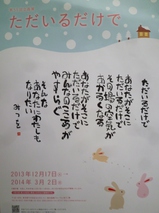 ただいるだけで
ただいるだけで
あなたがそこに
ただいるだけで
その場の空気が
あかるくなる
あなたがそこに
ただいるだけで
みんなのこころが
やすらぐ
そんな
あなたにわたしも
なりたい
みつを
2013年12月17日
2014年3月2日